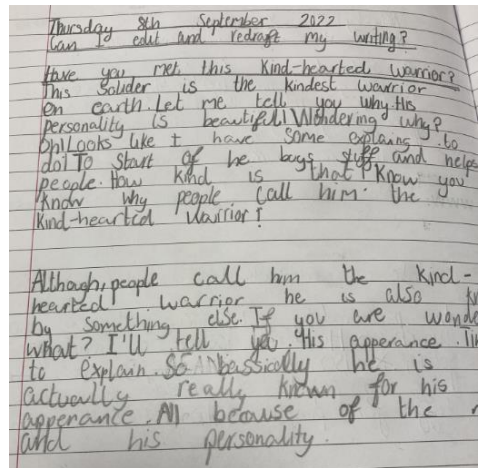 Thursday 8th September 2022
Can I edit and redraft my writing?
Have you met this kind-hearted warrior?
This Soluder is the kindest warrior
on earth. Let me tell you why. His
personality is beautiful! Wondering why?
Oh! Looks like I have some explaing to
do! To start of he buys stuff and helps
people. How kind is that? Know you
know why people call him the
kind-hearted warrior!
Although, people call him the kind-
hearted warrior he is also
by something else. If you are
what? I'll tell you. His apperance.
to explain. So bassically he is
actually really known for his
apperance. All because of the
and his personality.